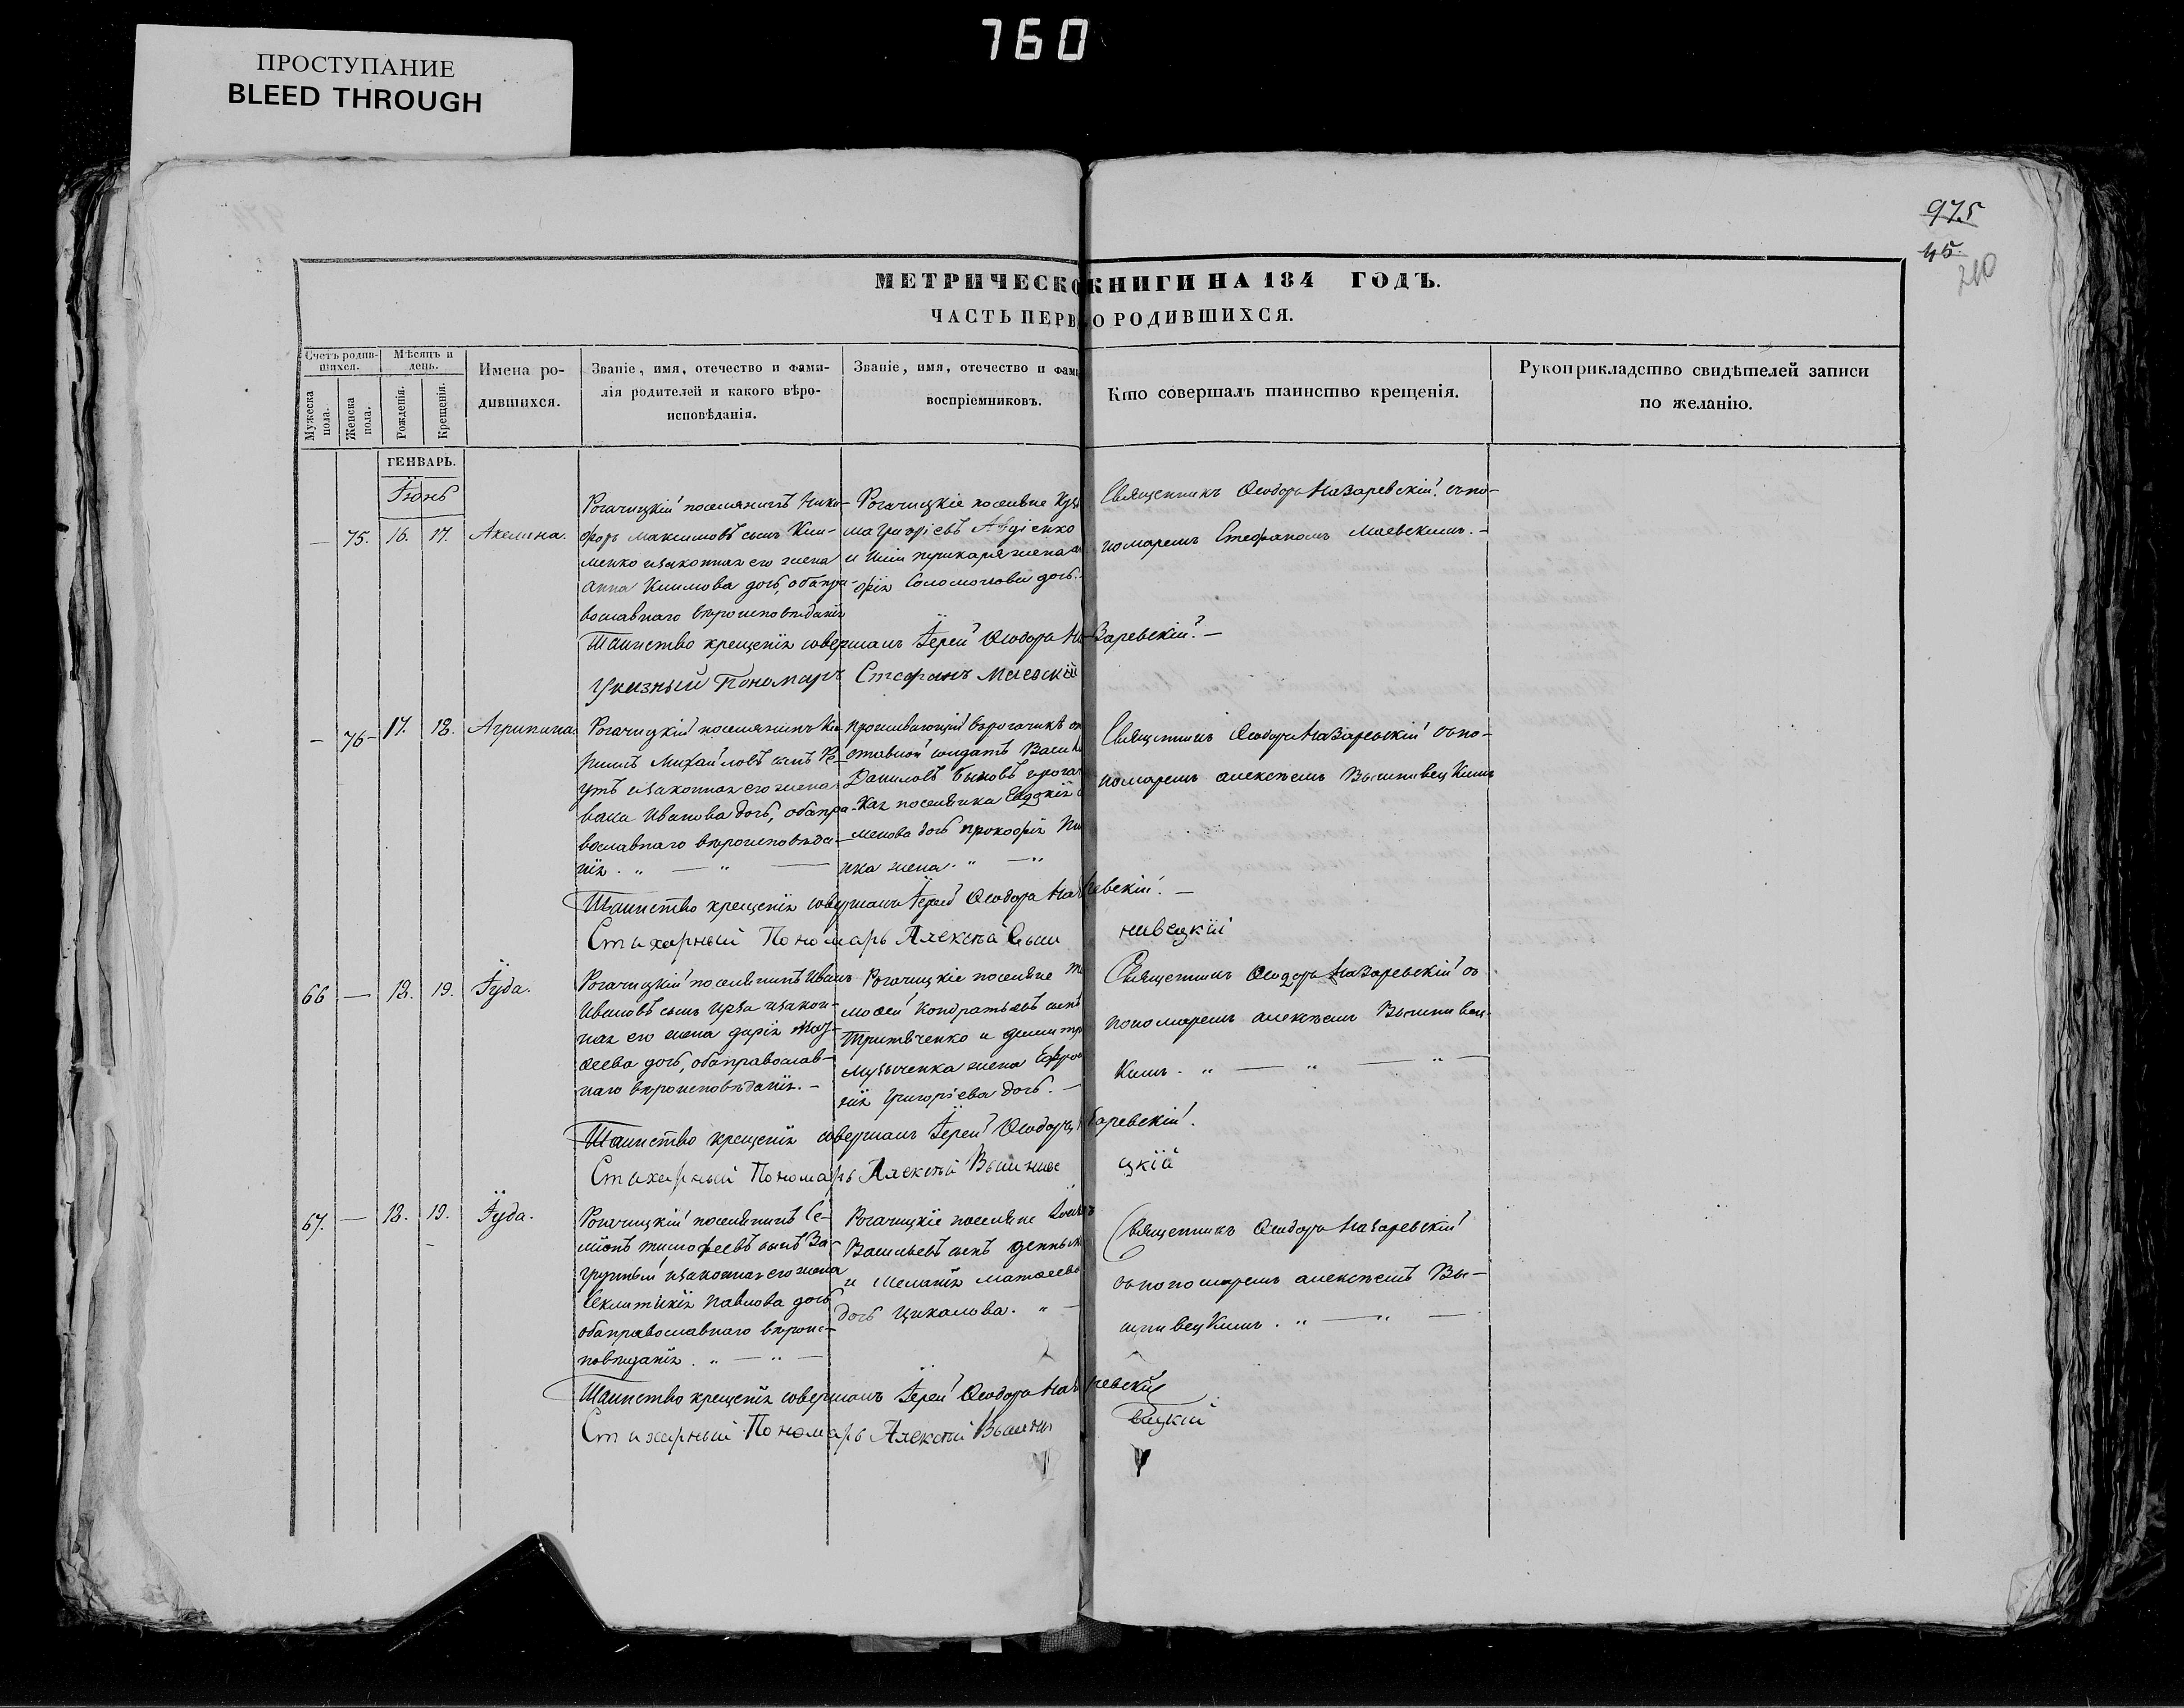 760
ПРОСТУПАНИЕ
BLEED THROUGH
975
45.
210
МЕТРИЧЕСКО КНИГИ НА 184 ГОДЪ.
ЧАСТЬ ПЕРВ О РОДИВШИХСЯ.
Счетъ родив-
шихся.
Мужеска пола.
Женска пола.
Мѣсяцъ и
день.
Рожденія.
Крещенія.
Имена ро-
дившихся.
Званіе, имя, отечество и фами-
лія родителей и какого вѣро-
исповѣданія.
Званіе, имя, отечество и фами
воспріемниковъ.
Кто совершалъ таинство крещенія.
Рукоприкладство свидѣтелей записи
по желанію.
ГЕНВАРЬ.
Іюнь
— 75. 16. 17. Акелина.
Рогачицкій поселянинъ Ники-
форъ Максимовъ сынъ Кли-
менко и законная его жена
Анна Климова дочь, оба пра-
вославнаго вѣроисповѣданія
Рогачицкіе поселяне Кузь
ма Григорієвъ Авдіенко
и жена
фія Соломонова дочь.
Священникъ Ѳеодоръ Назаревскій съ по-
номаремъ Стефаномъ Маевскимъ. —
Таинство крещенія совершалъ Іерей Ѳеодоръ Назаревскій. —
Указный Пономарь Стефанъ Маевскій
— 76 — 17. 18. Агрипина
Рогачицкій поселянинъ
Михайловъ сынъ Ре-
утъ и законная его жена
Иванова дочь, оба пра-
вославнаго вѣроисповѣда-
нія. „ — „ —
Проживающій въ Рогачикѣ от
ставной солдатъ Васил
Даниловъ Быковъ и рогач
кая поселянка Евдокія
менова дочь Прокофія
жена. „ — „
Священникъ Ѳеодоръ Назаревскій съ по-
номаремъ Алексѣемъ Вышнивецкимъ
Таинство крещенія совершалъ Іерей Ѳеодоръ Назаревскій. —
Стихарный Пономарь Алексѣй Выш нивецкій
66 — 18. 19. Іуда.
Рогачицкій поселянинъ Иванъ
Ивановъ сынъ и закон-
ная его жена Дарія
сеева дочь, оба православ-
наго вѣроисповѣданія. —
Рогачицкіе поселяне Ти
мофей Кондратьевъ сынъ
и Димитр
Музыченка жена Евфро
нія Григоріева дочь. —
Священникъ Ѳеодоръ Назаревскій съ
пономаремъ Алексѣемъ Вышнивец-
кимъ. „ — „ — „ —
Таинство крещенія совершалъ Іерей Ѳеодоръ Назаревскій.
Стихарный Пономарь Алексѣй Вышниве цкій
67. — 18. 19. Іуда.
Рогачицкій поселянинъ Се-
міонъ Тимофеевъ сынъ За-
грудный и законная его жена
Секлитикія Павлова дочь
оба православнаго вѣроис-
повѣданія. „ — „ —
Рогачицкіе поселяне
Васильевъ сынъ
и Меланія Матвеева
дочь Цикалова. „ —
Священникъ Ѳеодоръ Назаревскій
съ пономаремъ Алексѣемъ Вы-
шнивецкимъ. „ — „ —
Таинство крещенія совершалъ Іерей Ѳеодоръ Назаревскій
Стихарный Пономарь Алексѣй Вышни вецкій